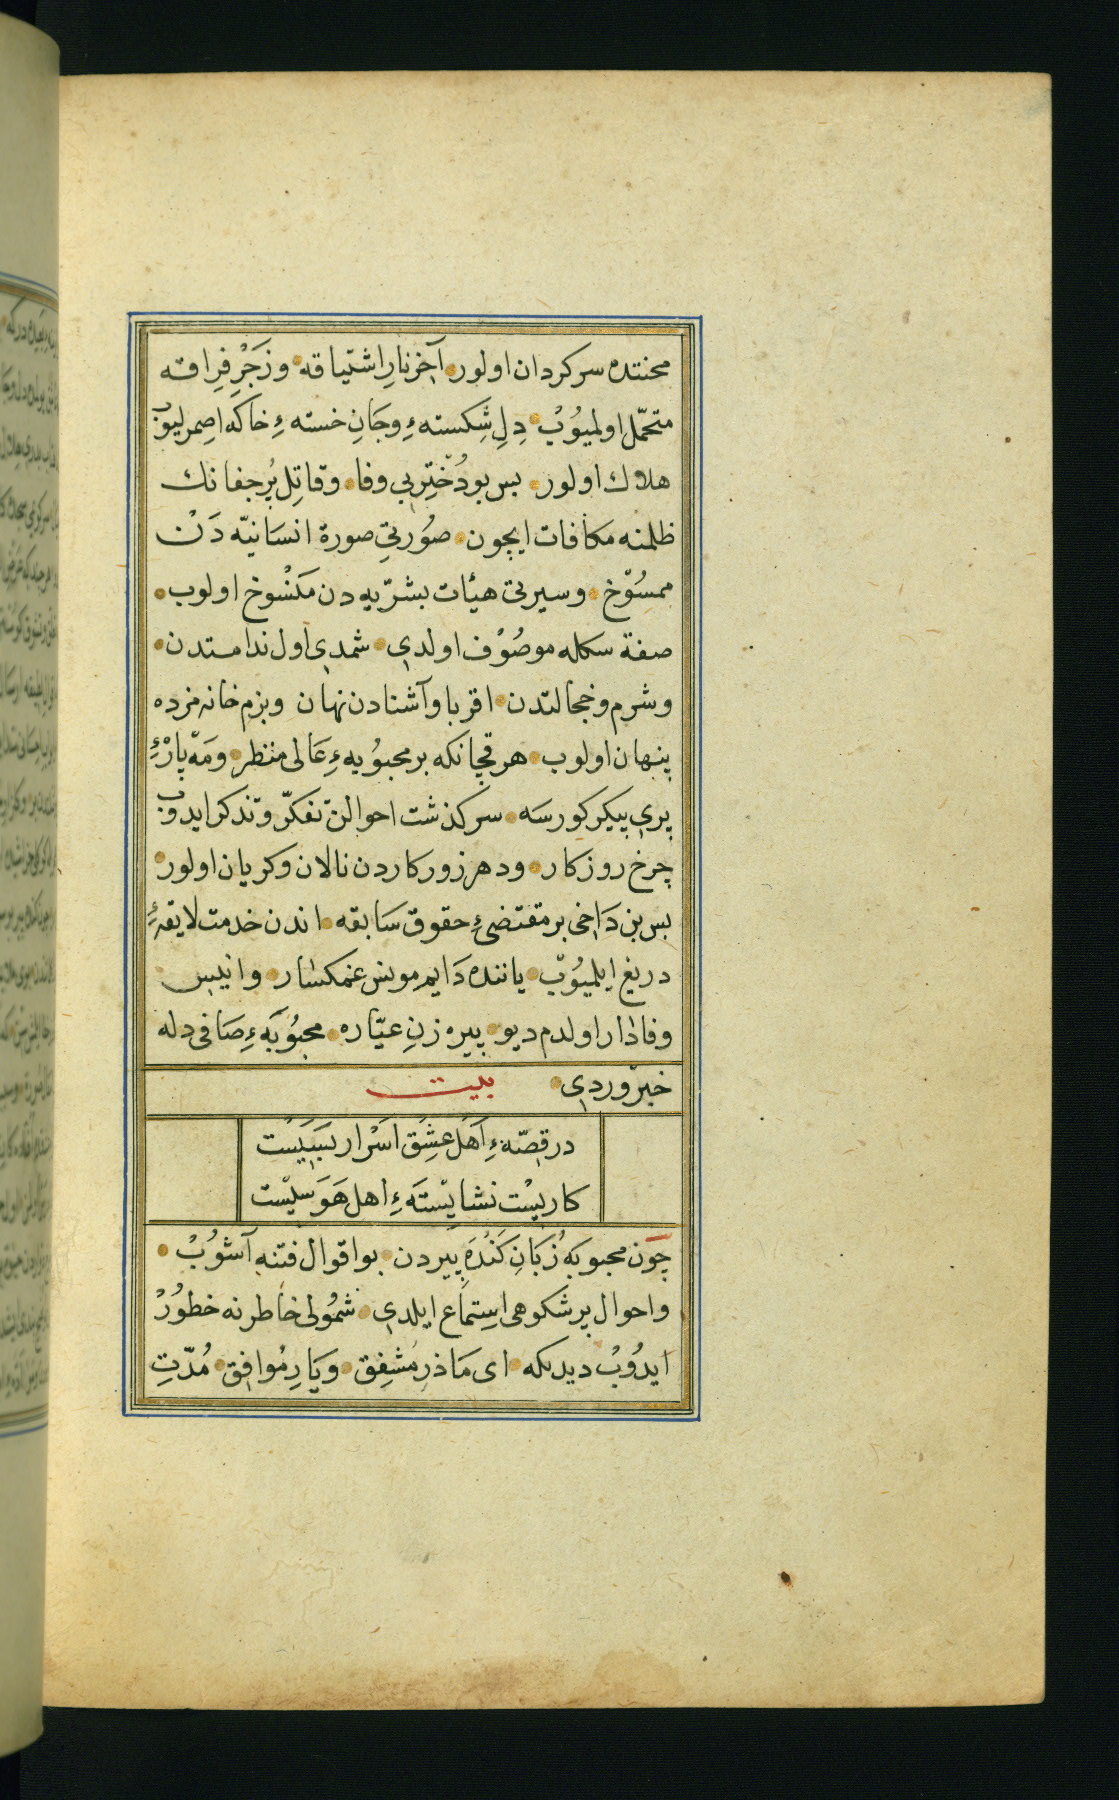 محنتده سرکردان اولور آخر نارِ اشتیاقه وزَجْرِ فِراقه
متحمّل اولمیُوبْ دِلِ شِکسته‌ءِ وجَانِ خسته‌ءِ خاکه اصمرلیوب
هلاك اولور بس بو دُخْتِرِ بی وفا وقاتِلِ پُرجفانك
ظلمنه مکافات ایچون صُورتِی صورة انسَانیّه دَنْ
ممسُوْخ وسیرتی هیئات بشرّیه دن مَنْسُوخ اولوب
صفة سکله موصُوْف اولدی شمدی اول ندامتدن
وشرم وخجالتدن اقربا وآشنادن نهان وبزم خانه مزده
پنهان اولوب هر قچانکه بر محبوُبه‌ءِ عَالی منظر ومَه پارْه‌ءِ
پری پیکر کورسَه سرکذشت احوالن تفکّر وتذکر ایدوب
چرخ روزکار ودهر زورکاردن نالان وکریان اولور
بس بن دَاخی بر مقتضیءِ حقوق سَابقه اندن خدمت لایقه‌ءِ
دریغ ایلمیُوبْ یاننده دَایم مونس غمکسَار وانیس
وفادار اولدم دیو پیره زنِ عیّاره محبُوبَه‌ءِ صَافی دله
خبر وردی بیت
در قصّه‌ءِ اَهل عشِق اسَرْار بسَیَسْت
کاریسْت نشایسْتَه‌ءِ اهل هَوَسیسْت
چَون محبوبَه زُبَانِ کَنْدَه پیردن بو اقوال فتنه آشوُبْ
واحوال پر شکوهی استِماع ایلدی شمُولی خاطرنه خطُورْ
ایدُوبْ دیدیکه ای مَاذرِ مُشفِق ویَارِ مُوافق مُدّتِ